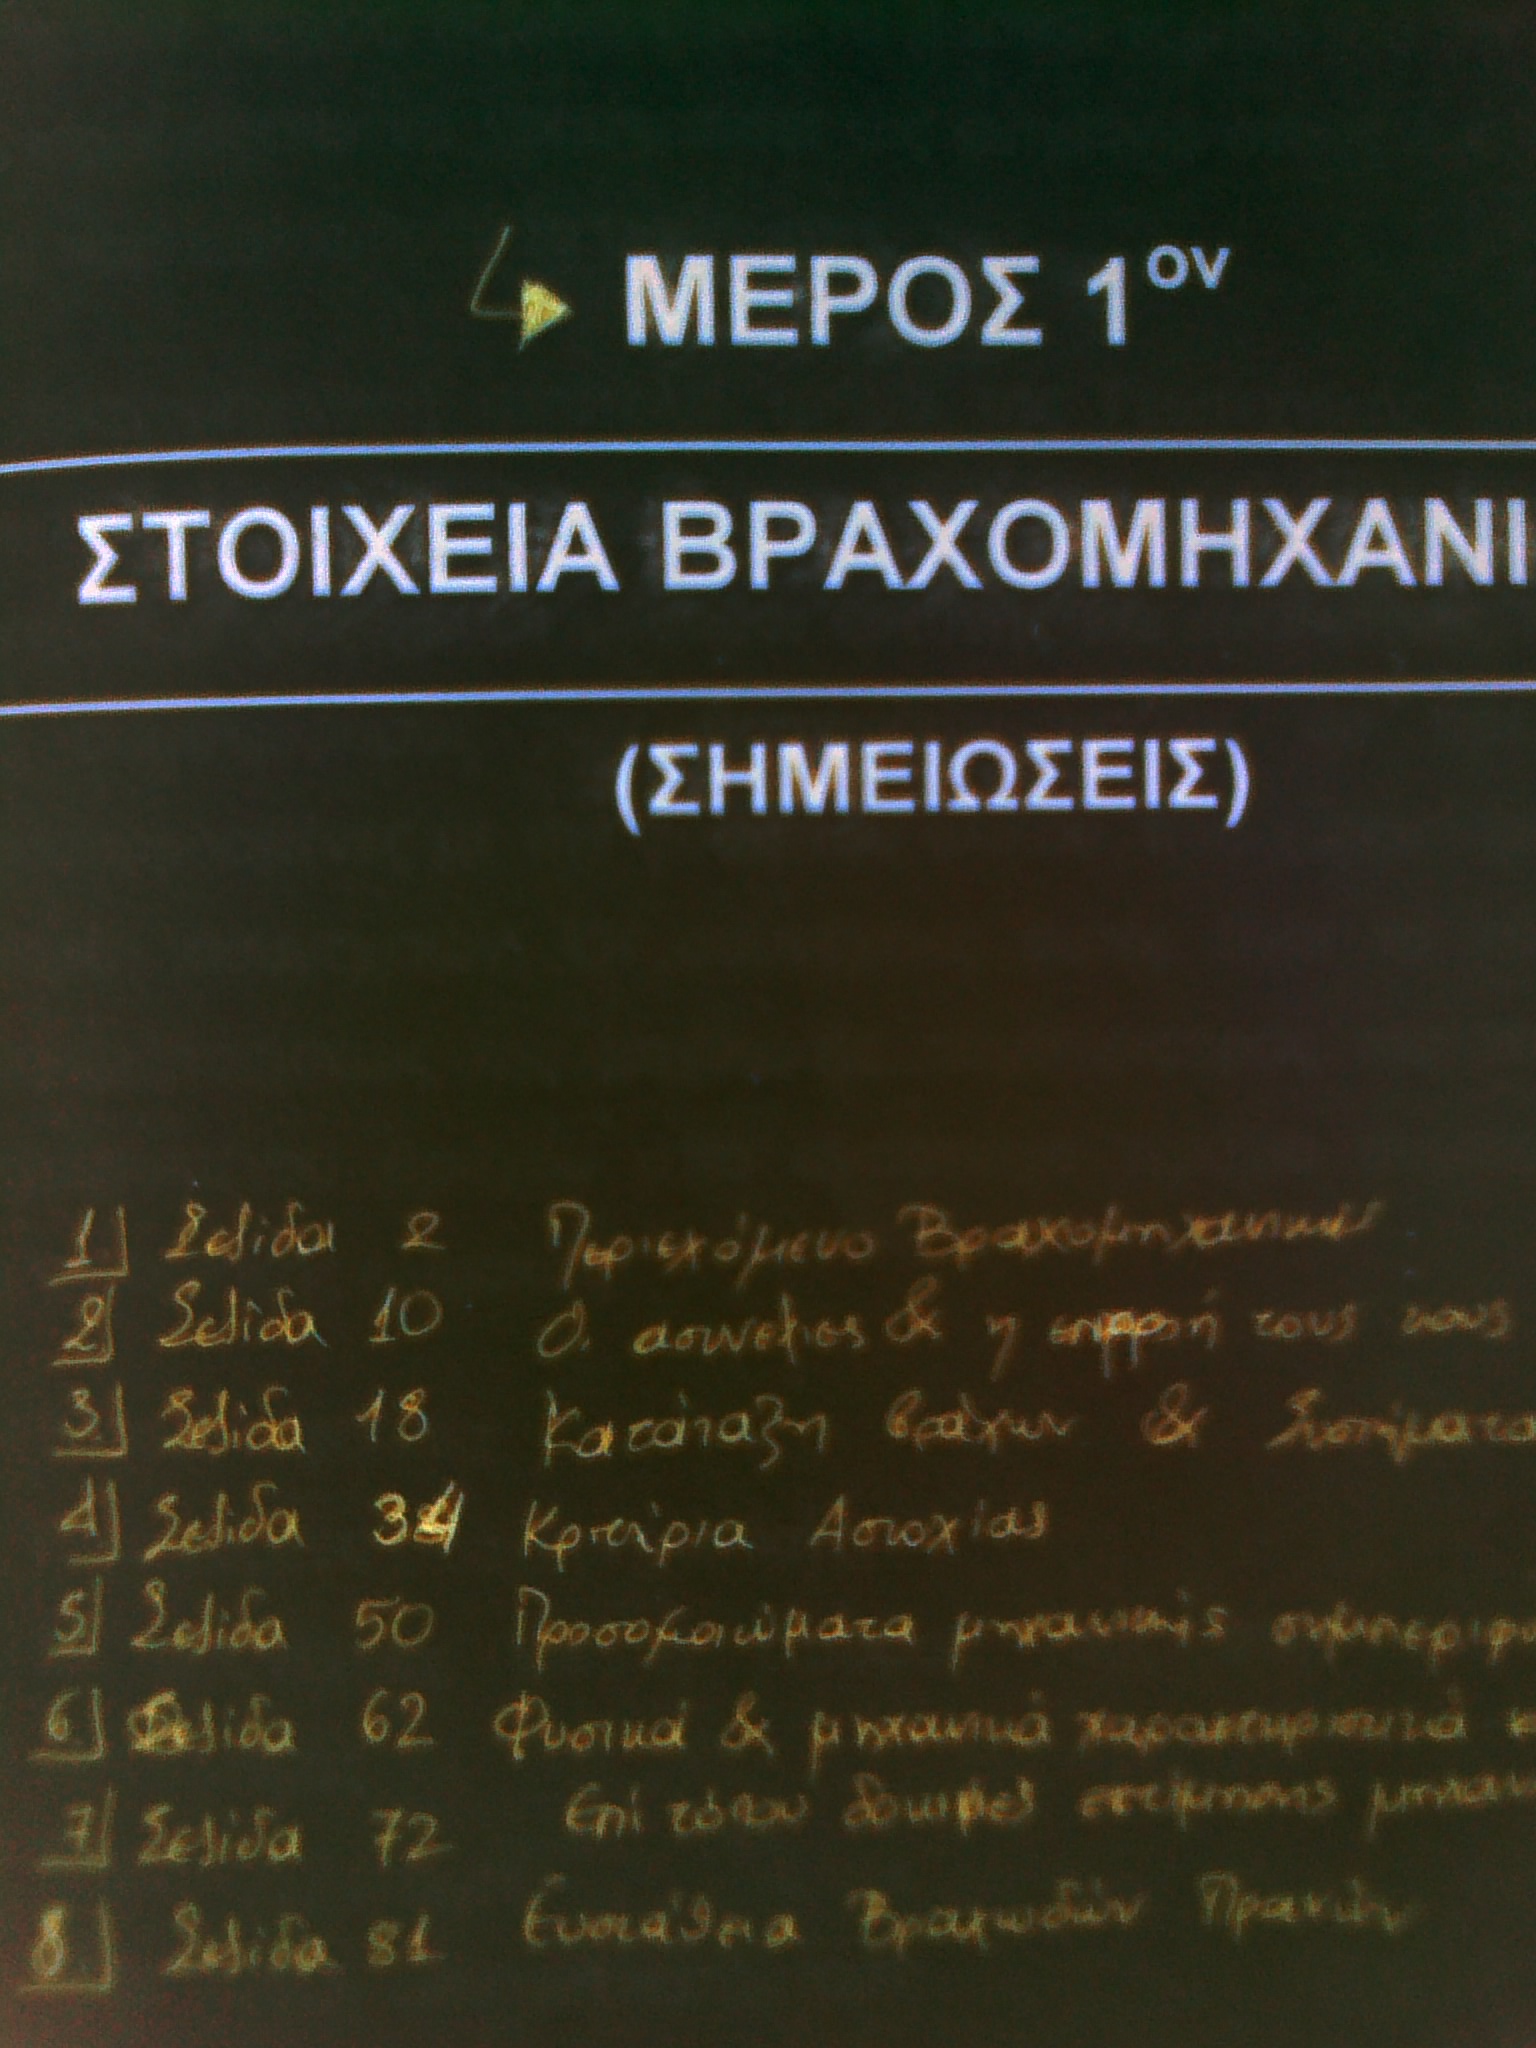 ΜΕΡΟΣ 1ον
ΣΤΟΙΧΕΙΑ ΒΡΑΧΟΜΗΧΑΝΙ
(ΣΗΜΕΙΩΣΕΙΣ)
1. Σελίδα 2 Περιεχόμενο Βραχομηχανικής
2. Σελίδα 10 Οι ασυνέχειες & η επιρροή τους τους
3. Σελίδα 18 Κατάταξη βράχων & Συστήματα
4. Σελίδα 34 Κριτήρια Αστοχίας
5. Σελίδα 50 Προσομοιώματα μηχανικής συμπεριφ
6. Σελίδα 62 Φυσικά & μηχανικά χαρακτηριστικά
7. Σελίδα 72 Επί τόπου δοκιμές μηχαν
8. Σελίδα 81 Ευστάθεια Βραχωδών Πρανών